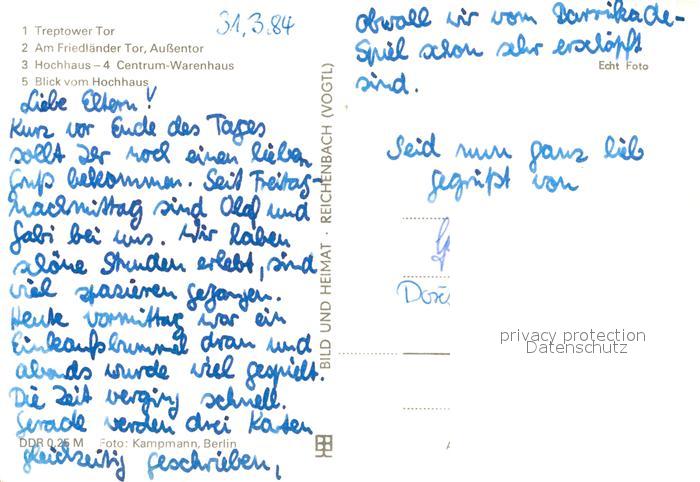 31.3.84
1 Treptower Tor
2 Am Friedländer Tor, Außentor
3 Hochhaus – 4 Centrum-Warenhaus
5 Blick vom Hochhaus
Liebe Eltern!
Kurz vor Ende des Tages
sollt Ihr noch einen lieben
Gruß bekommen. Seit Freitag-
nachmittag sind Olaf und
Gabi bei uns. Wir haben
schöne Stunden erlebt, sind
viel spazieren gegangen.
Heute vormittag war ein
Einkaufsbummel dran und
abends wurde viel gespielt.
Die Zeit verging schnell.
Gerade werden drei Karten
gleichzeitig geschrieben,
DDR 0,25 M Foto: Kampmann, Berlin
BILD UND HEIMAT · REICHENBACH (VOGTL)
obwohl wir vom Barrikade-
Spiel schon sehr erschöpft
sind.
Echt Foto
Seid nun ganz lieb
gegrüßt von
privacy protection
Datenschutz